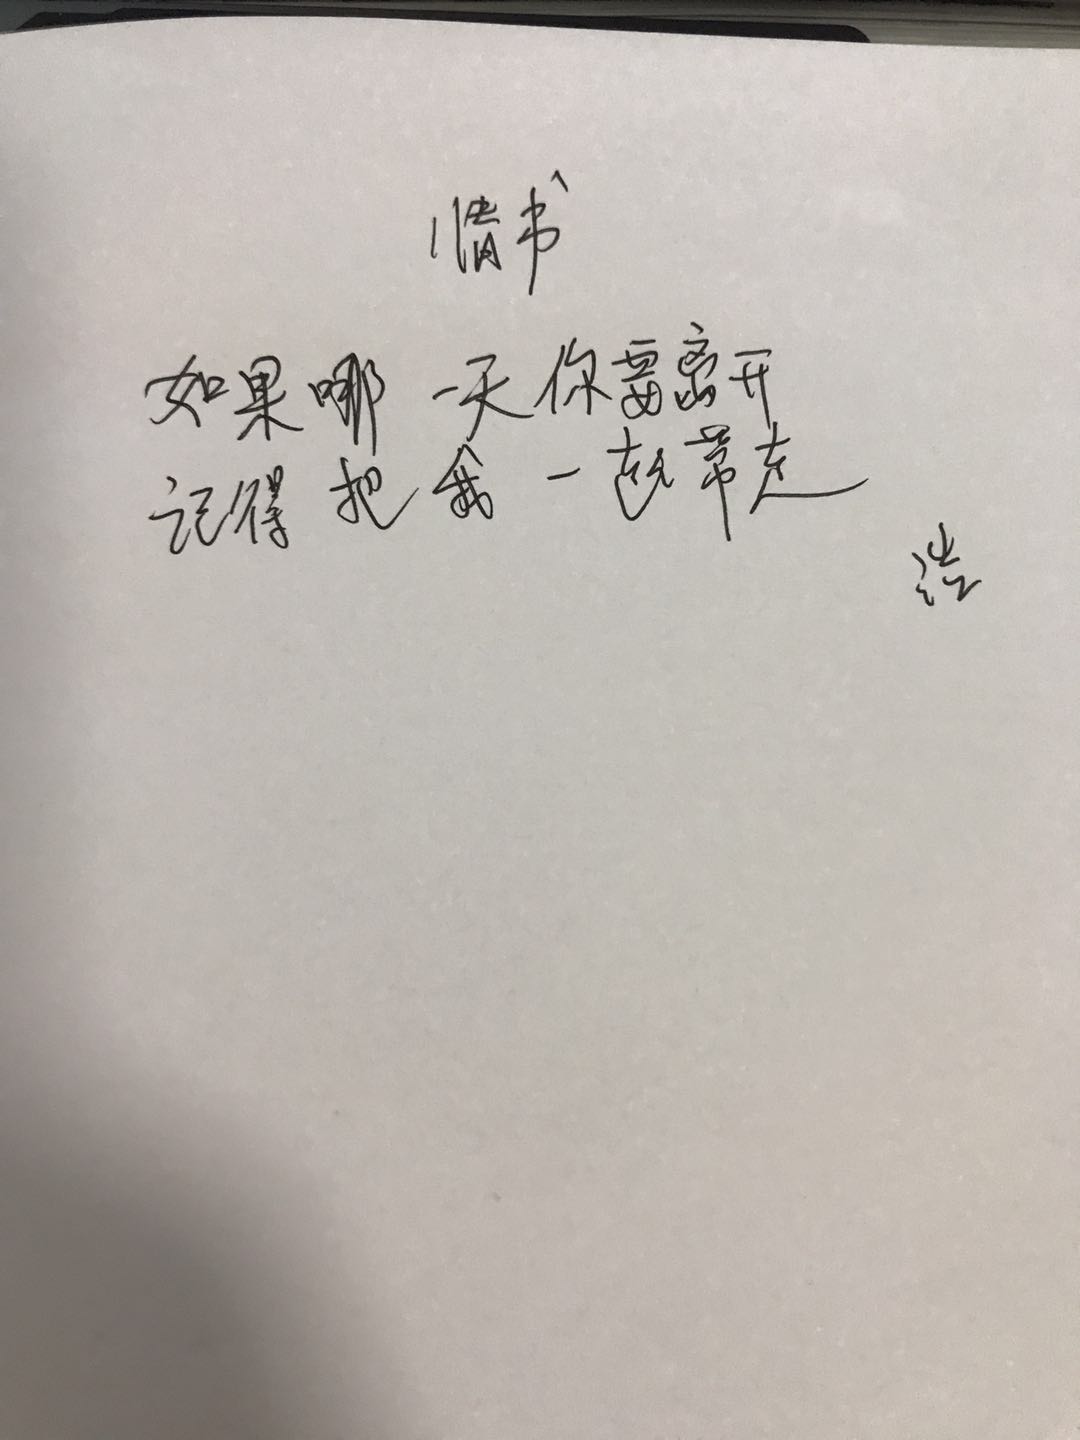 情书
如果哪一天你要离开
记得把我一起带走